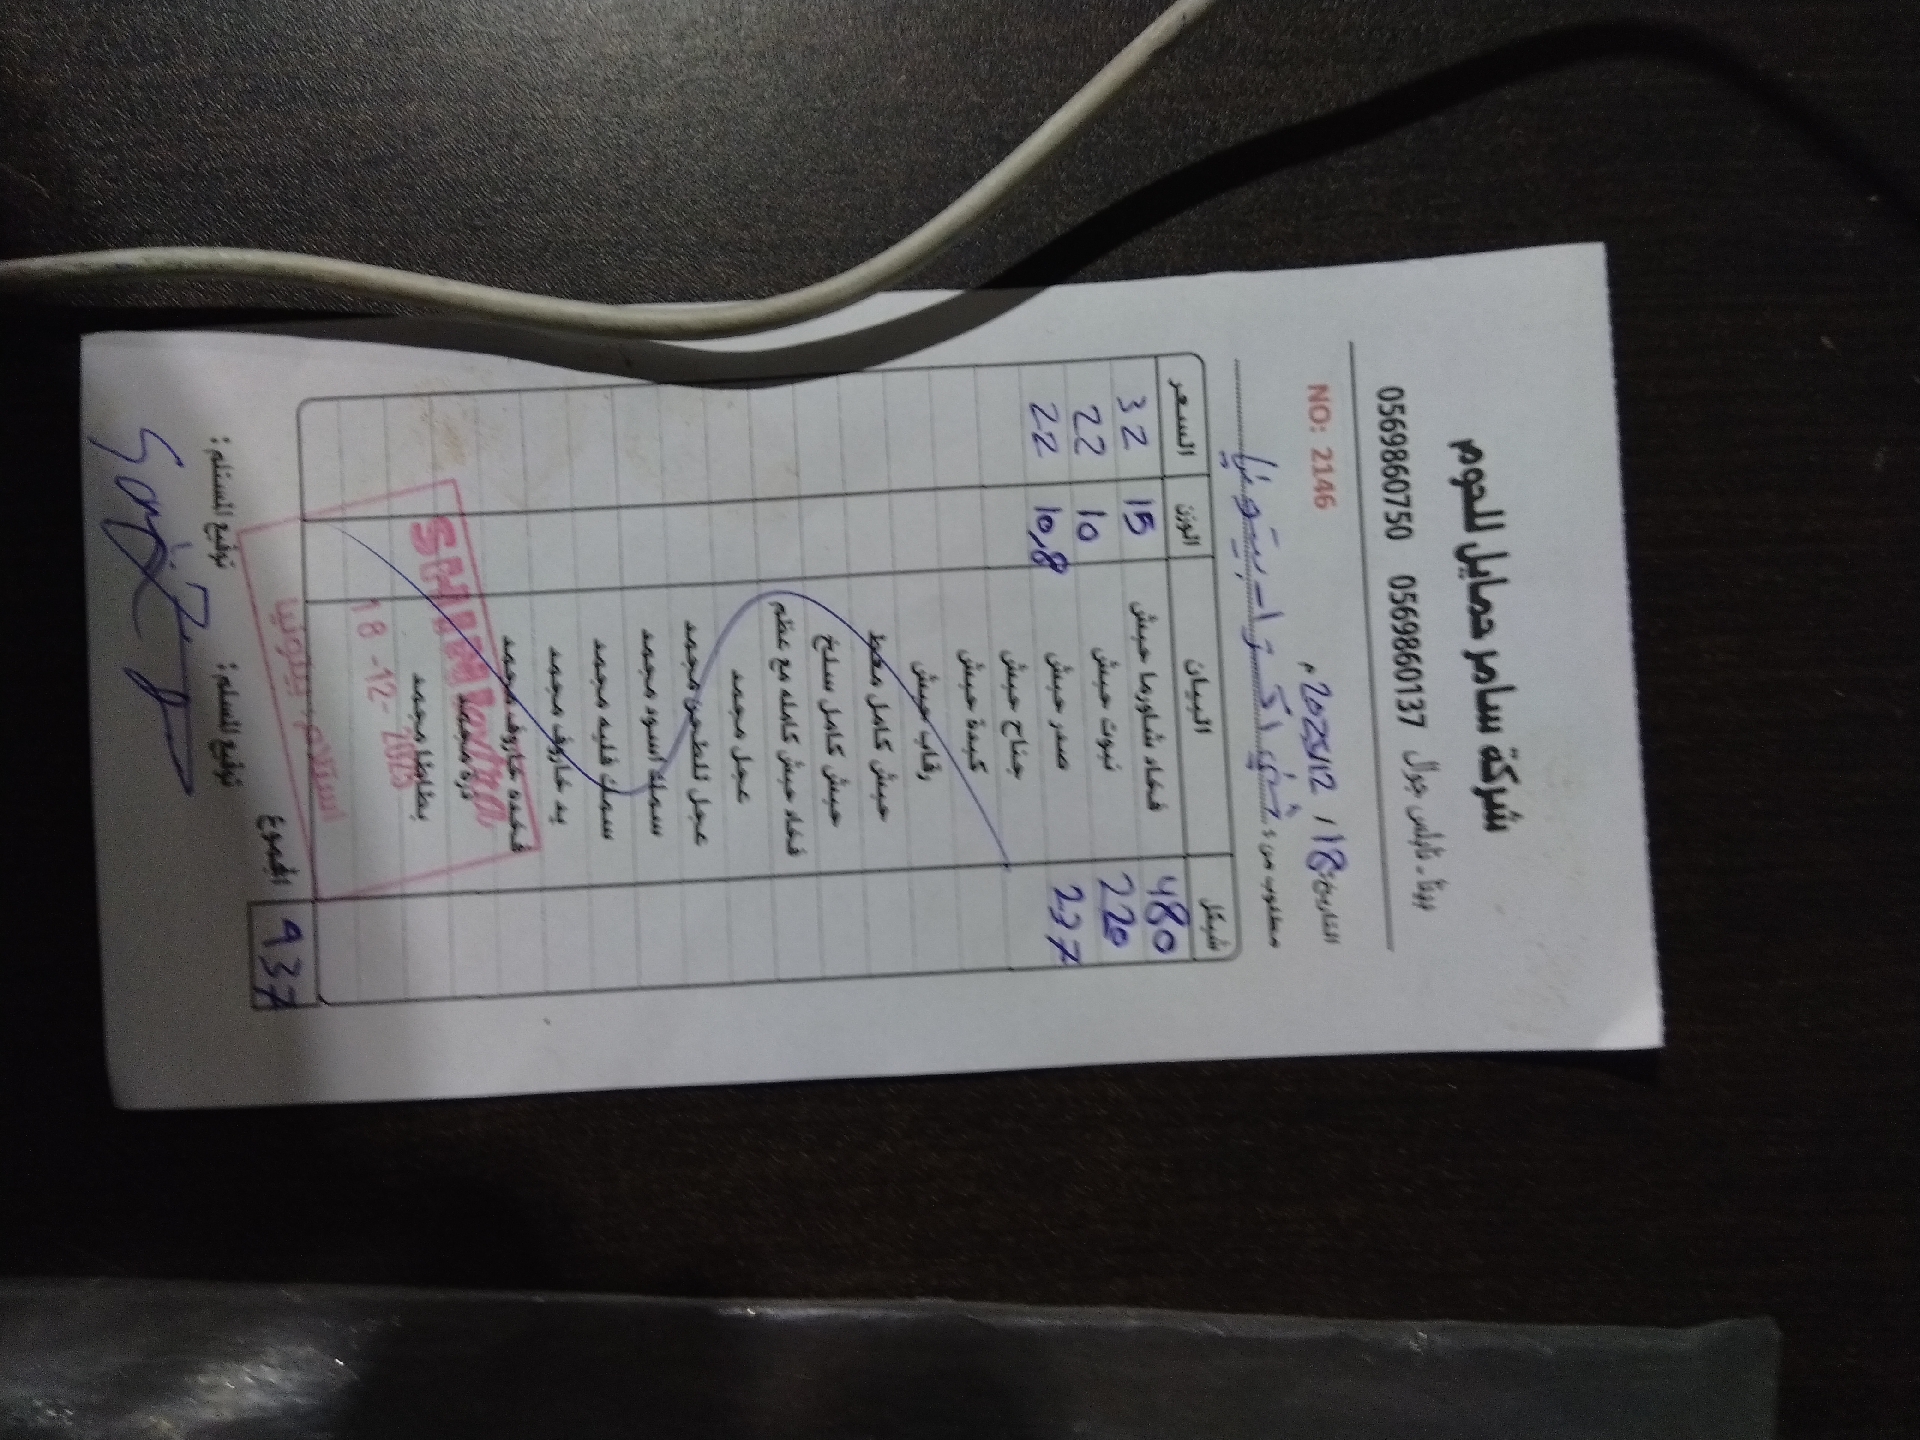 شركة سامر حمايل للحوم
0569860750 0569860137 بيتا - نابلس جوال
NO: 2146
التاريخ: 18 / 12 / 2025م
مطلوب من :
السعر الوزن البيان شيكل
32 15 فخاد شاورما حبش 480
22 10 نبوت حبش 220
22 10,8 صدر حبش 237
جناح حبش
كبدة حبش
رقاب حبش
حبش كامل معوط
حبش كامل سلخ
فخاد حبش كامله مع عظم
عجل مجمد
عجل للطحن مجمد
سمك اسود مجمد
سمك فليه مجمد
يد خاروف مجمد
فخده خاروف مجمد
ذره مجمد
بطاطا مجمد
SHINI extra
18 -12- 2025
استلام بيتونيا
المجموع 937
توقيع المستلم: توقيع المسلم: